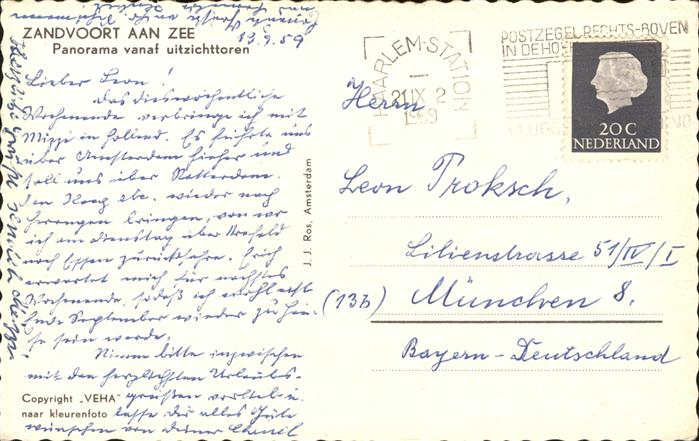 ZANDVOORT AAN ZEE
Panorama vanaf uitzichttoren
13.9.59
Lieber Leon!
Das dieswöchentliche
Wochenende verbringe ich mit
Mizzi in Holland. Es führte uns
über Amsterdam hieher und
soll uns über Rotterdam
Den Haag wieder nach
bringen, von wo
ich am Dienstag über Krefeld
nach Essen zurückfahre. Erich
erwartet mich für nächstes
Wochenende, sodaß ich
Ende September wieder zu Hau-
se sein werde.
Nimm bitte inzwischen
mit den herzlichsten Urlaubs-
grüßen vorlieb u.
lasse dir alles Gute
wünschen von deiner
Copyright „VEHA"
naar kleurenfoto
J. J. Ros, Amsterdam
HAARLEM-STATION
21 IX 2
1959
POSTZEGEL RECHTS-BOVEN
IN DE
20 C
NEDERLAND
Herrn
Leon Proksch,
Lilienstrasse 51/IV/I
(13b) München 8.
Bayern-Deutschland